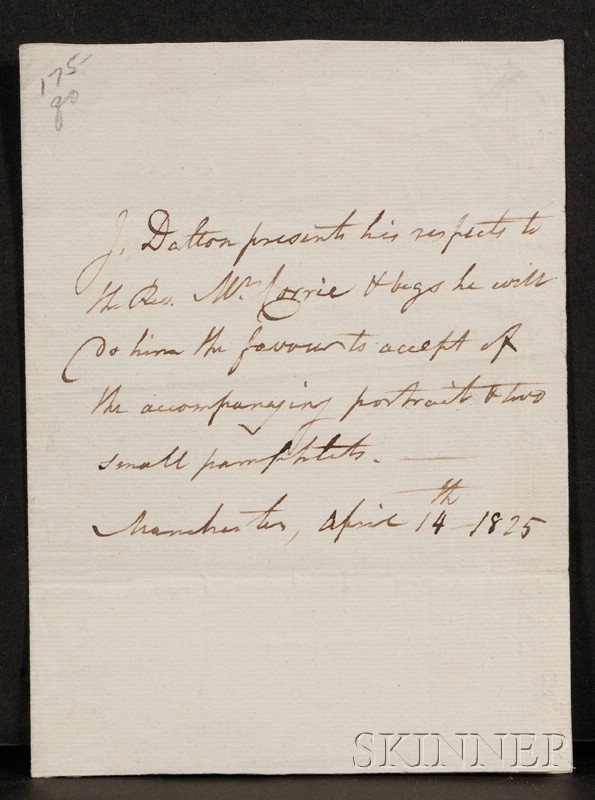 175-
go
J. Dalton presents his respects to
the Rev. Mr Corrie & begs he will
do him the favour to accept of
the accompanying portrait & two
small pamphlets. —
Manchester, April 14th 1825
SKINNER